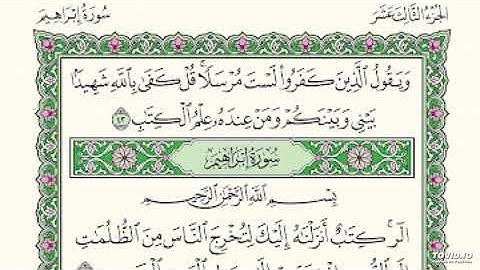 الجزء الثالث عشر
سورة إبراهيم
وَيَقُولُ ٱلَّذِينَ كَفَرُوا۟ لَسْتَ مُرْسَلًا ۚ قُلْ كَفَىٰ بِٱللَّهِ شَهِيدًۢا
بَيْنِى وَبَيْنَكُمْ وَمَنْ عِندَهُۥ عِلْمُ ٱلْكِتَٰبِ ٤٣
سُورَةُ إِبْرَاهِيمَ
بِسْمِ ٱللَّهِ ٱلرَّحْمَٰنِ ٱلرَّحِيمِ
الٓر ۚ كِتَٰبٌ أَنزَلْنَٰهُ إِلَيْكَ لِتُخْرِجَ ٱلنَّاسَ مِنَ ٱلظُّلُمَٰتِ
TOVID.IO